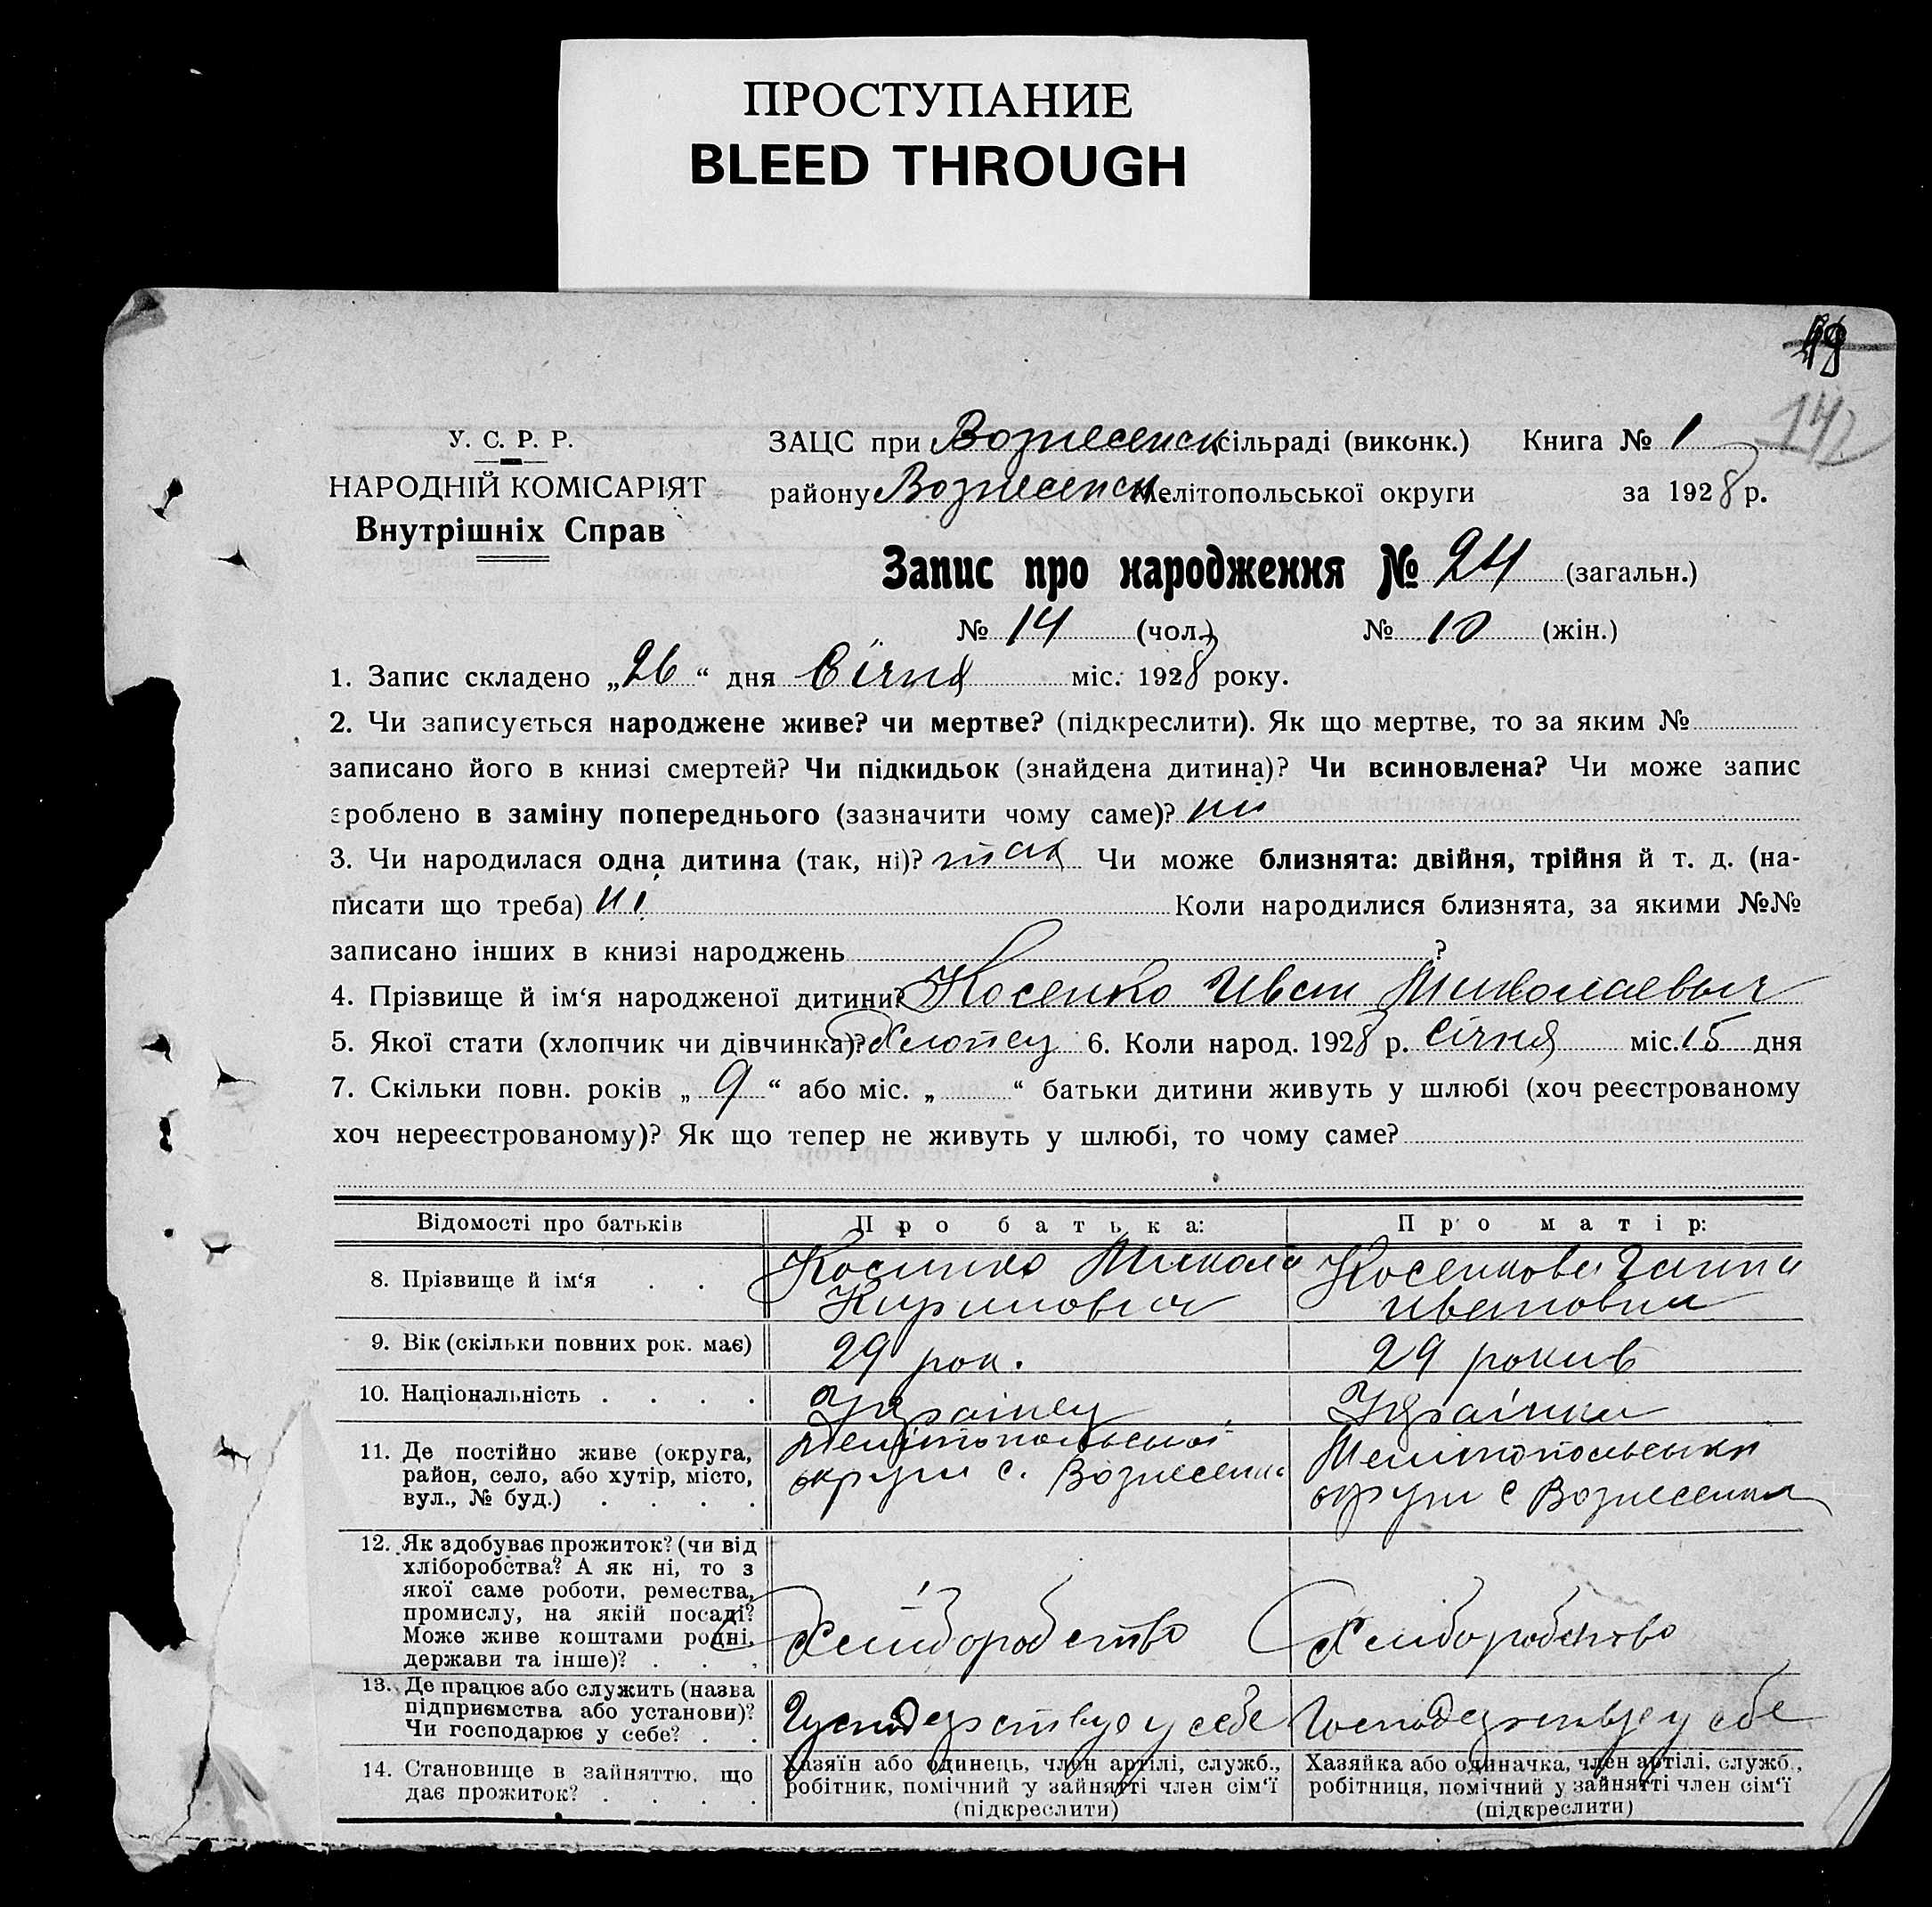 ПРОСТУПАНИЕ
BLEED THROUGH
142
У. С. Р. Р.
НАРОДНІЙ КОМІСАРІЯТ
Внутрішніх Справ
ЗАЦС при Вознесенск сільраді (виконк.) Книга № 1
району Вознесенск Мелітопольської округи за 1928 р.
Запис про народження № 24 (загальн.)
№ 14 (чол.) № 10 (жін.)
1. Запис складено „26“ дня Січня міс. 1928 року.
2. Чи записується народжене живе? чи мертве? (підкреслити). Як що мертве, то за яким №
записано його в книзі смертей? Чи підкидьок (знайдена дитина)? Чи всиновлена? Чи може запис
зроблено в заміну попереднього (зазначити чому саме)? ні
3. Чи народилася одна дитина (так, ні)? так Чи може близнята: двійня, трійня й т. д. (на-
писати що треба) ні Коли народилися близнята, за якими №№
записано інших в книзі народжень ?
4. Прізвище й ім‘я народженої дитини? Косенко Иван Миколаевыч
5. Якої стати (хлопчик чи дівчинка)? Хлопец 6. Коли народ. 1928 р. Січня міс. 15 дня
7. Скільки повн. років „9“ або міс. „ “ батьки дитини живуть у шлюбі (хоч реєстрованому
хоч нереєстрованому)? Як що тепер не живуть у шлюбі, то чому саме?
Відомості про батьків Про батька: Про матір:
8. Прізвище й ім‘я . . Косенко Микола Косенкова Ганна
Кирилович Ивановна
9. Вік (скільки повних рок. має) 29 рок. 29 рокив
10. Національність . . . . Українец Українка
11. Де постійно живе (округа, район, село, або хутір, місто, вул., № буд.) . . . .
Мелітопольської
округи с. Вознесенка
Мелитопольськи
округи с Вознесенка
12. Як здобуває прожиток? (чи від
хліборобства? А як ні, то з
якої саме роботи, ремества,
промислу, на якій посаді?
Може живе коштами родні,
держави та інше)? . . .
Хлиборобство Хлиборобство
13. Де працює або служить (назва
підприємства або установи)?
Чи господарює у себе? . .
Господарствує у себе Господарствує у себе
14. Становище в зайняттю, що
дає прожиток? . . . .
Хазяїн або одинець, член артілі, служб.,
робітник, помічний у зайнятті член сім‘ї
(підкреслити)
Хазяйка або одиначка, член артілі, служб.,
робітниця, помічний у зайнятті член сім‘ї
(підкреслити)